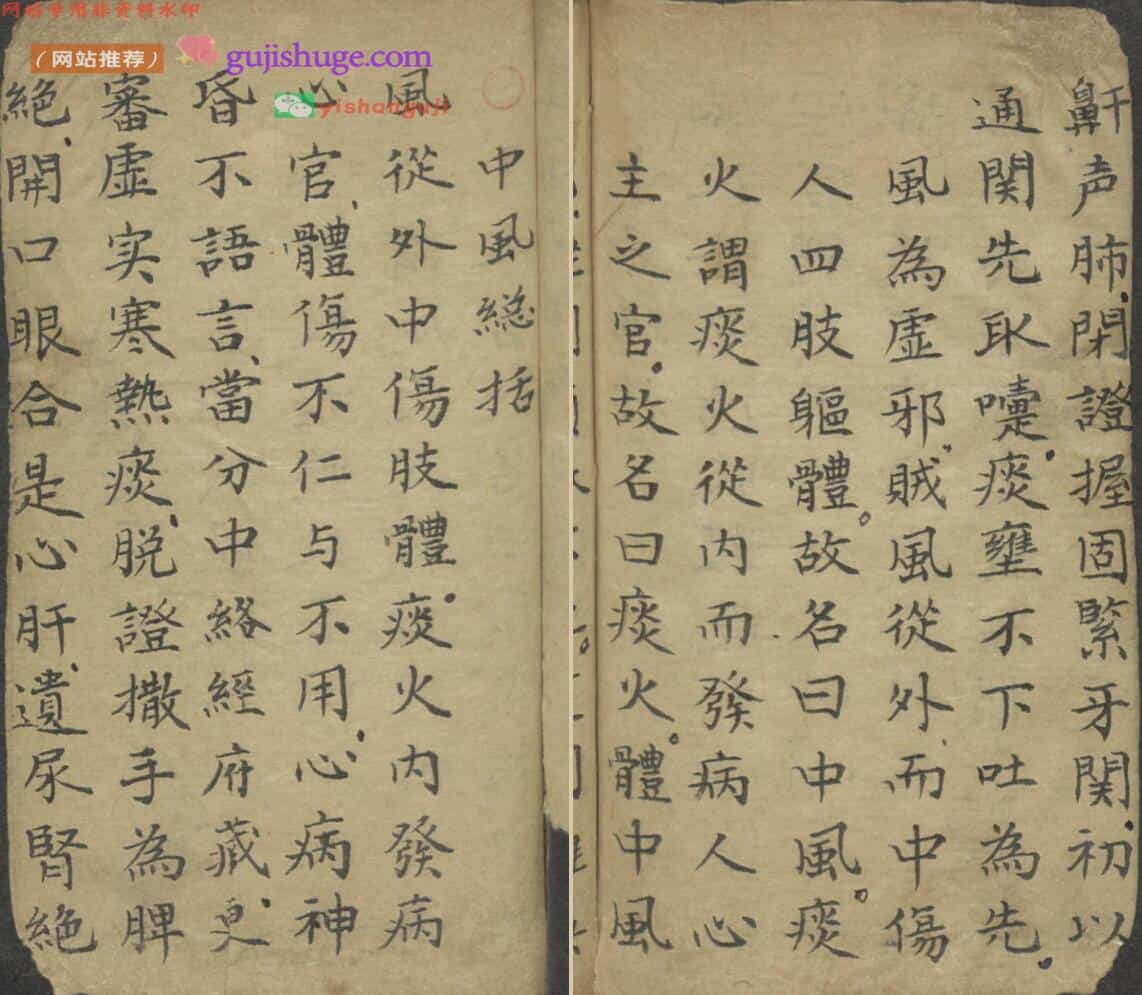 网站专用非资料水印
（网站推荐）
gujishuge.com
yishanguji
中風緫括
風從外中傷肢體。痰火内發病
心官、體傷不仁与不用、心病神
昏不語言、當分中絡經府蔵、更
審虛实寒熱痰、脱證撒手為脾
絕、開口眼合是心肝、遺尿腎絕
鼾声肺、閉證握固緊牙関、初以
通関先取嚏。痰壅不下吐為先。
風為虛邪、賊風從外而中傷
人四肢軀體。故名曰中風。痰
火謂痰火從内而發病人心
主之官。故名曰痰火。體中風